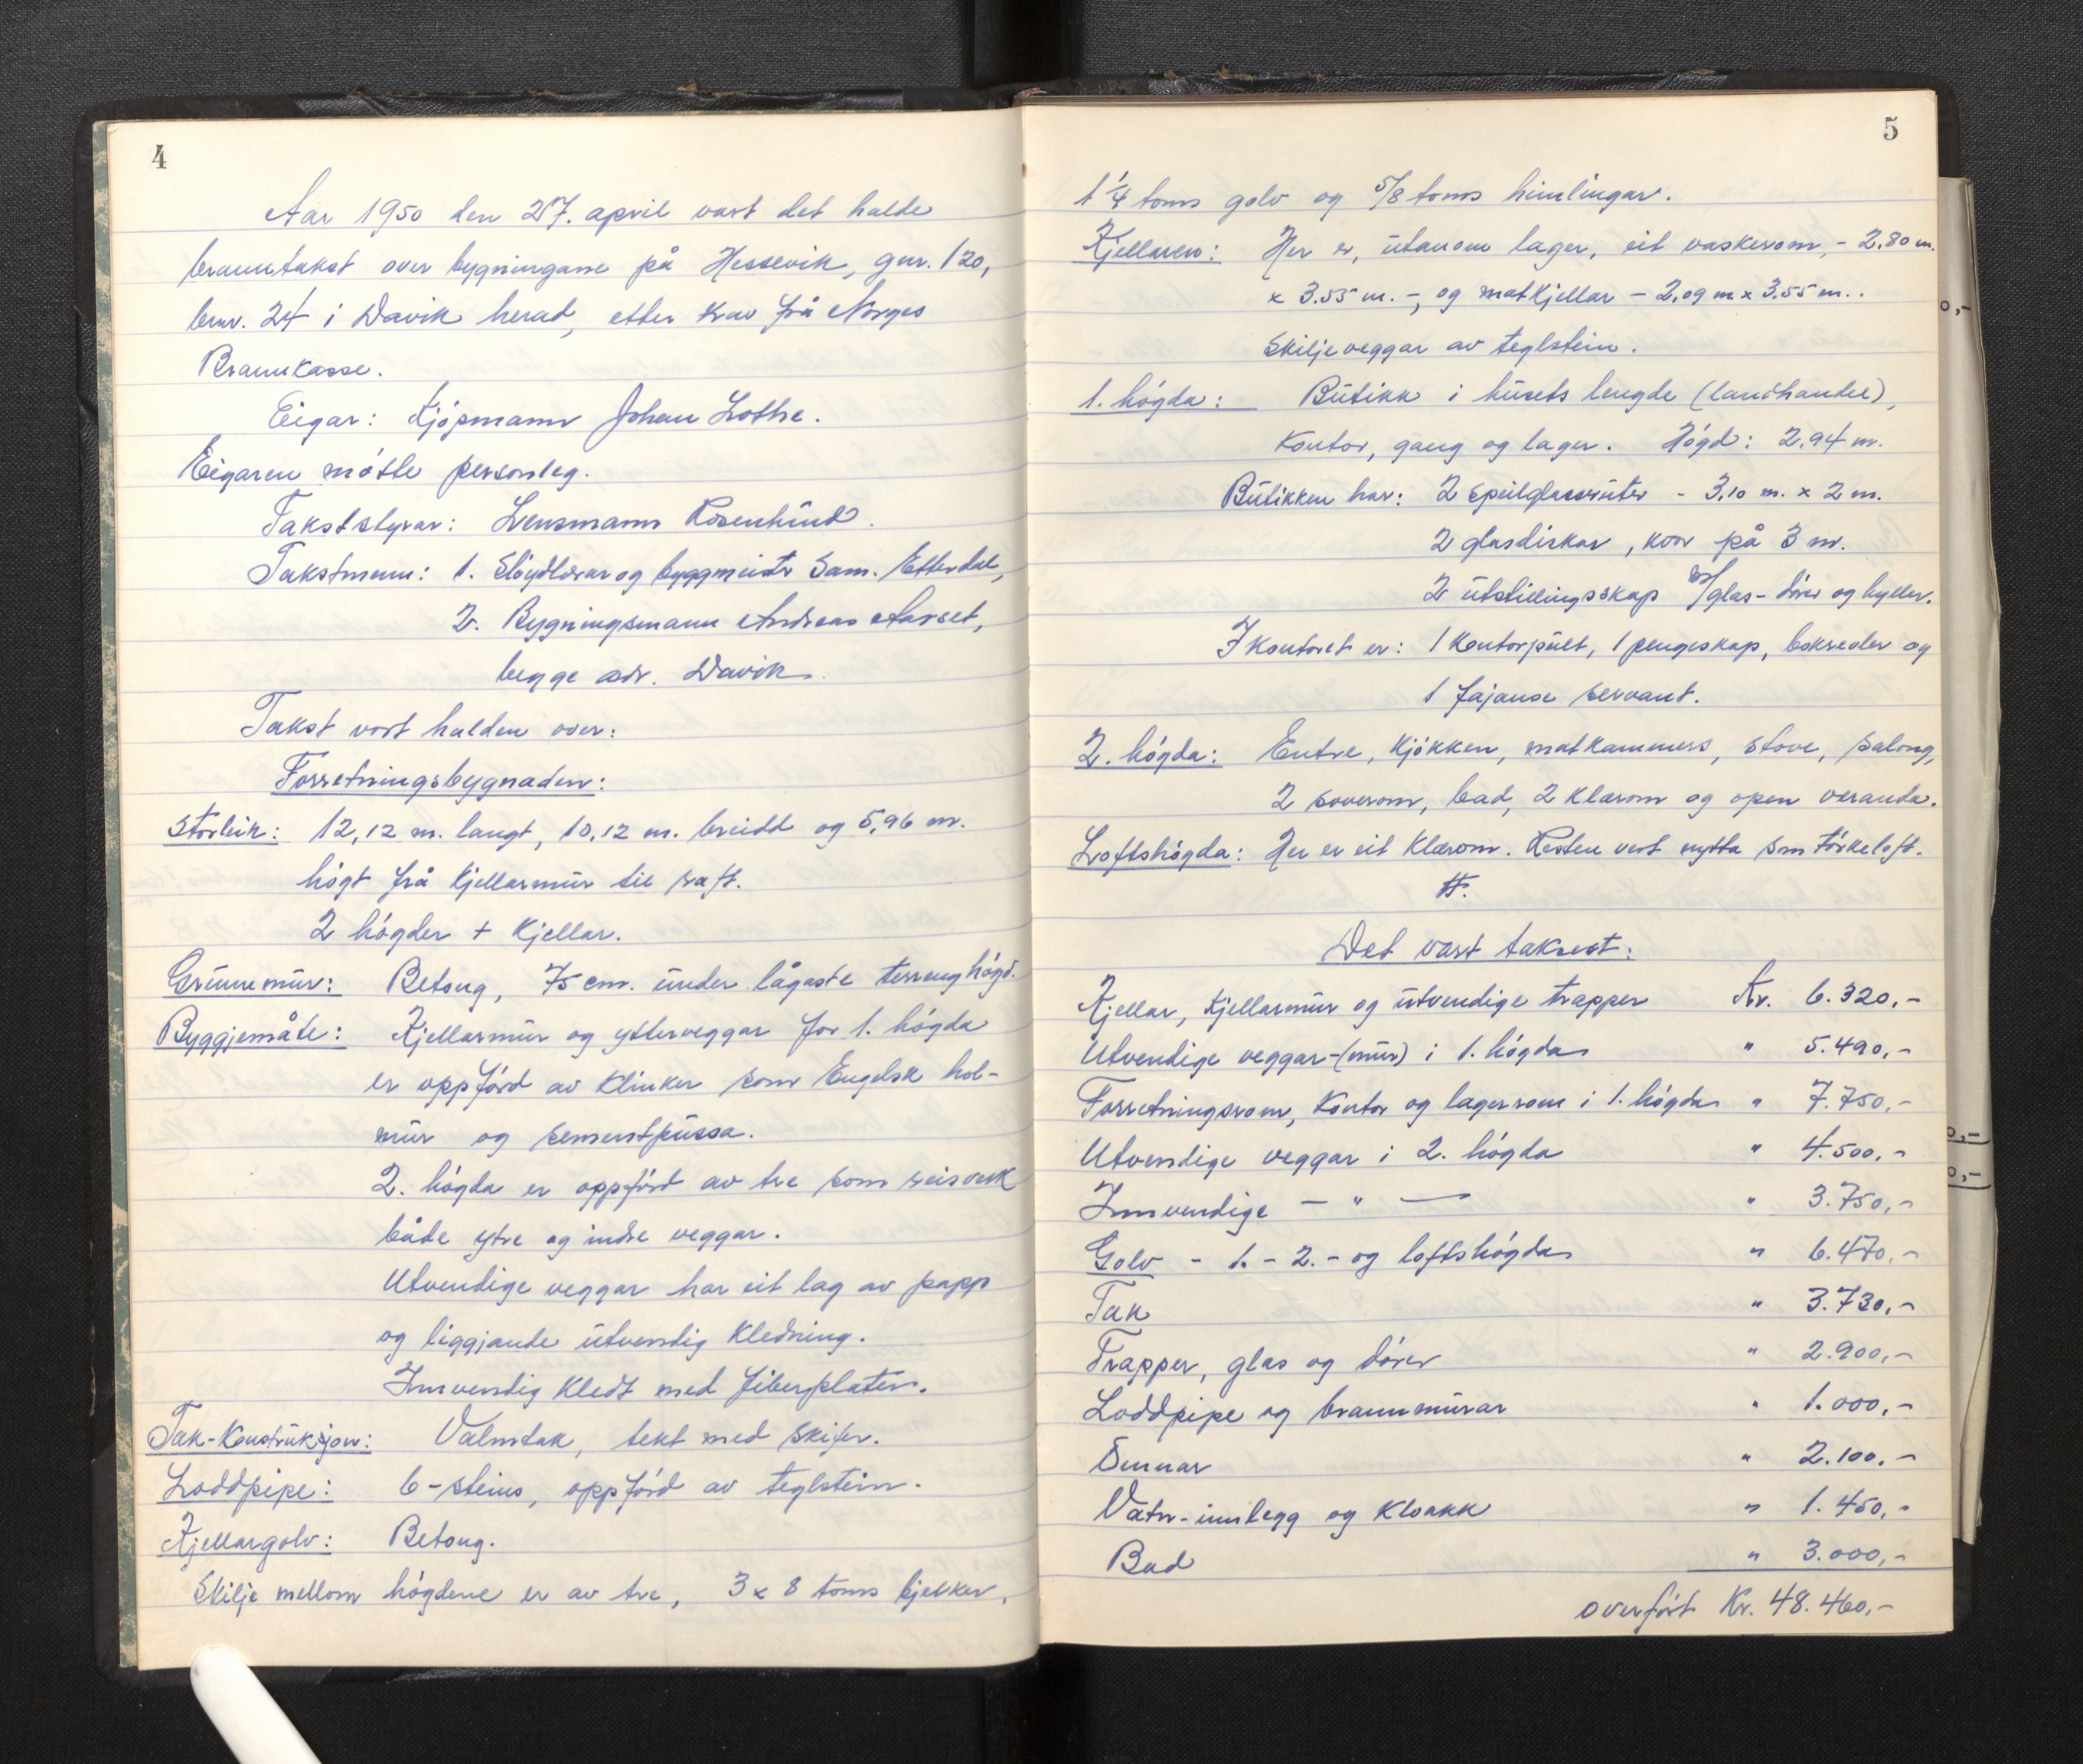 4
Aar 1950 den 27. april vart det halde
branntakst over bygningane på Hessevik, gnr. 120,
bnr. 24 i Davik herad, etter krav frå Norges
Brannkasse.
Eigar: Kjöpmann Johan Lothe.
Eigaren mötte personleg.
Takststyrar: Lensmann Rosenlund.
Takstmenn: 1. Slöydlærar og byggmeistr Sam. Etterdal,
2. Bygningsmann Andreas Aarset,
begge adr. Davik.
Takst vart halden over:
Forretningsbygnaden:
Storleik: 12,12 m. langt, 10,12 m. breidd og 5,96 m.
högt frå kjellarmur til raft.
2 högder + Kjellar.
Grunnmur: Betong, 75 cm. under lågaste terrenghögd.
Byggjemåte: Kjellarmur og ytterveggar for 1. högda
er oppförd av klinker som Engelsk hol-
mur og sementpussa.
2. högda er oppförd av tre som reisverk
både ytre og indre veggar.
Utvendige veggar har eit lag av papp
og liggjande utvendig kledning.
Innvendig kledt med fiberplater.
Tak-Konstruksjon: Valmtak, tekt med skifer.
Loddpipe: 6-steins, oppförd av teglstein.
Kjellargolv: Betong.
Skilje mellom högdene er av tre, 3 x 8 toms bjelker,
5
1 1/4 toms golv og 5/8 toms himlingar.
Kjellaren: Her er, utanom lager, eit vaskerom, - 2.80 m.
x 3.55 m. -, og matkjellar - 2,09 m x 3.55 m..
Skiljeveggar av teglstein.
1. högda: Butikk i husets lengde (landhandel),
Kontor, gang og lager. Högd: 2.94 m.
Butikken har: 2 speilglassruter - 3,10 m. x 2 m.
2 glasdiskar, kvar på 3 m.
2 utstillingsskap m/glas-dører og hyller.
I kontoret er: 1 kontorpult, 1 pengeskap, bokreoler og
1 fajanse servant.
2. högda: Entre, kjökken, matkammers, stove, salong,
2 soverom, bad, 2 klærom og open veranda.
Loftshögda: Her er eit klærom. Resten vert nytta som törkeloft.
Det vart taksert:
Kjellar, kjellarmur og utvendige trapper Kr. 6.320,-
Utvendige veggar-(mur) i 1. högda " 5.490,-
Forretningsrom, kontor og lagerrom i 1. högda " 7.750,-
Utvendige veggar i 2. högda " 4.500,-
Innvendige - " - " 3.750,-
Golv - 1. - 2. - og loftshögda " 6.470,-
Tak " 3.730,-
Trapper, glas og dörer " 2.900,-
Loddpipe og brannmurar " 1.000,-
Omnar " 2.100,-
Vatn-innlegg og kloakk " 1.450,-
Bad " 3.000,-
overfört Kr. 48.460,-